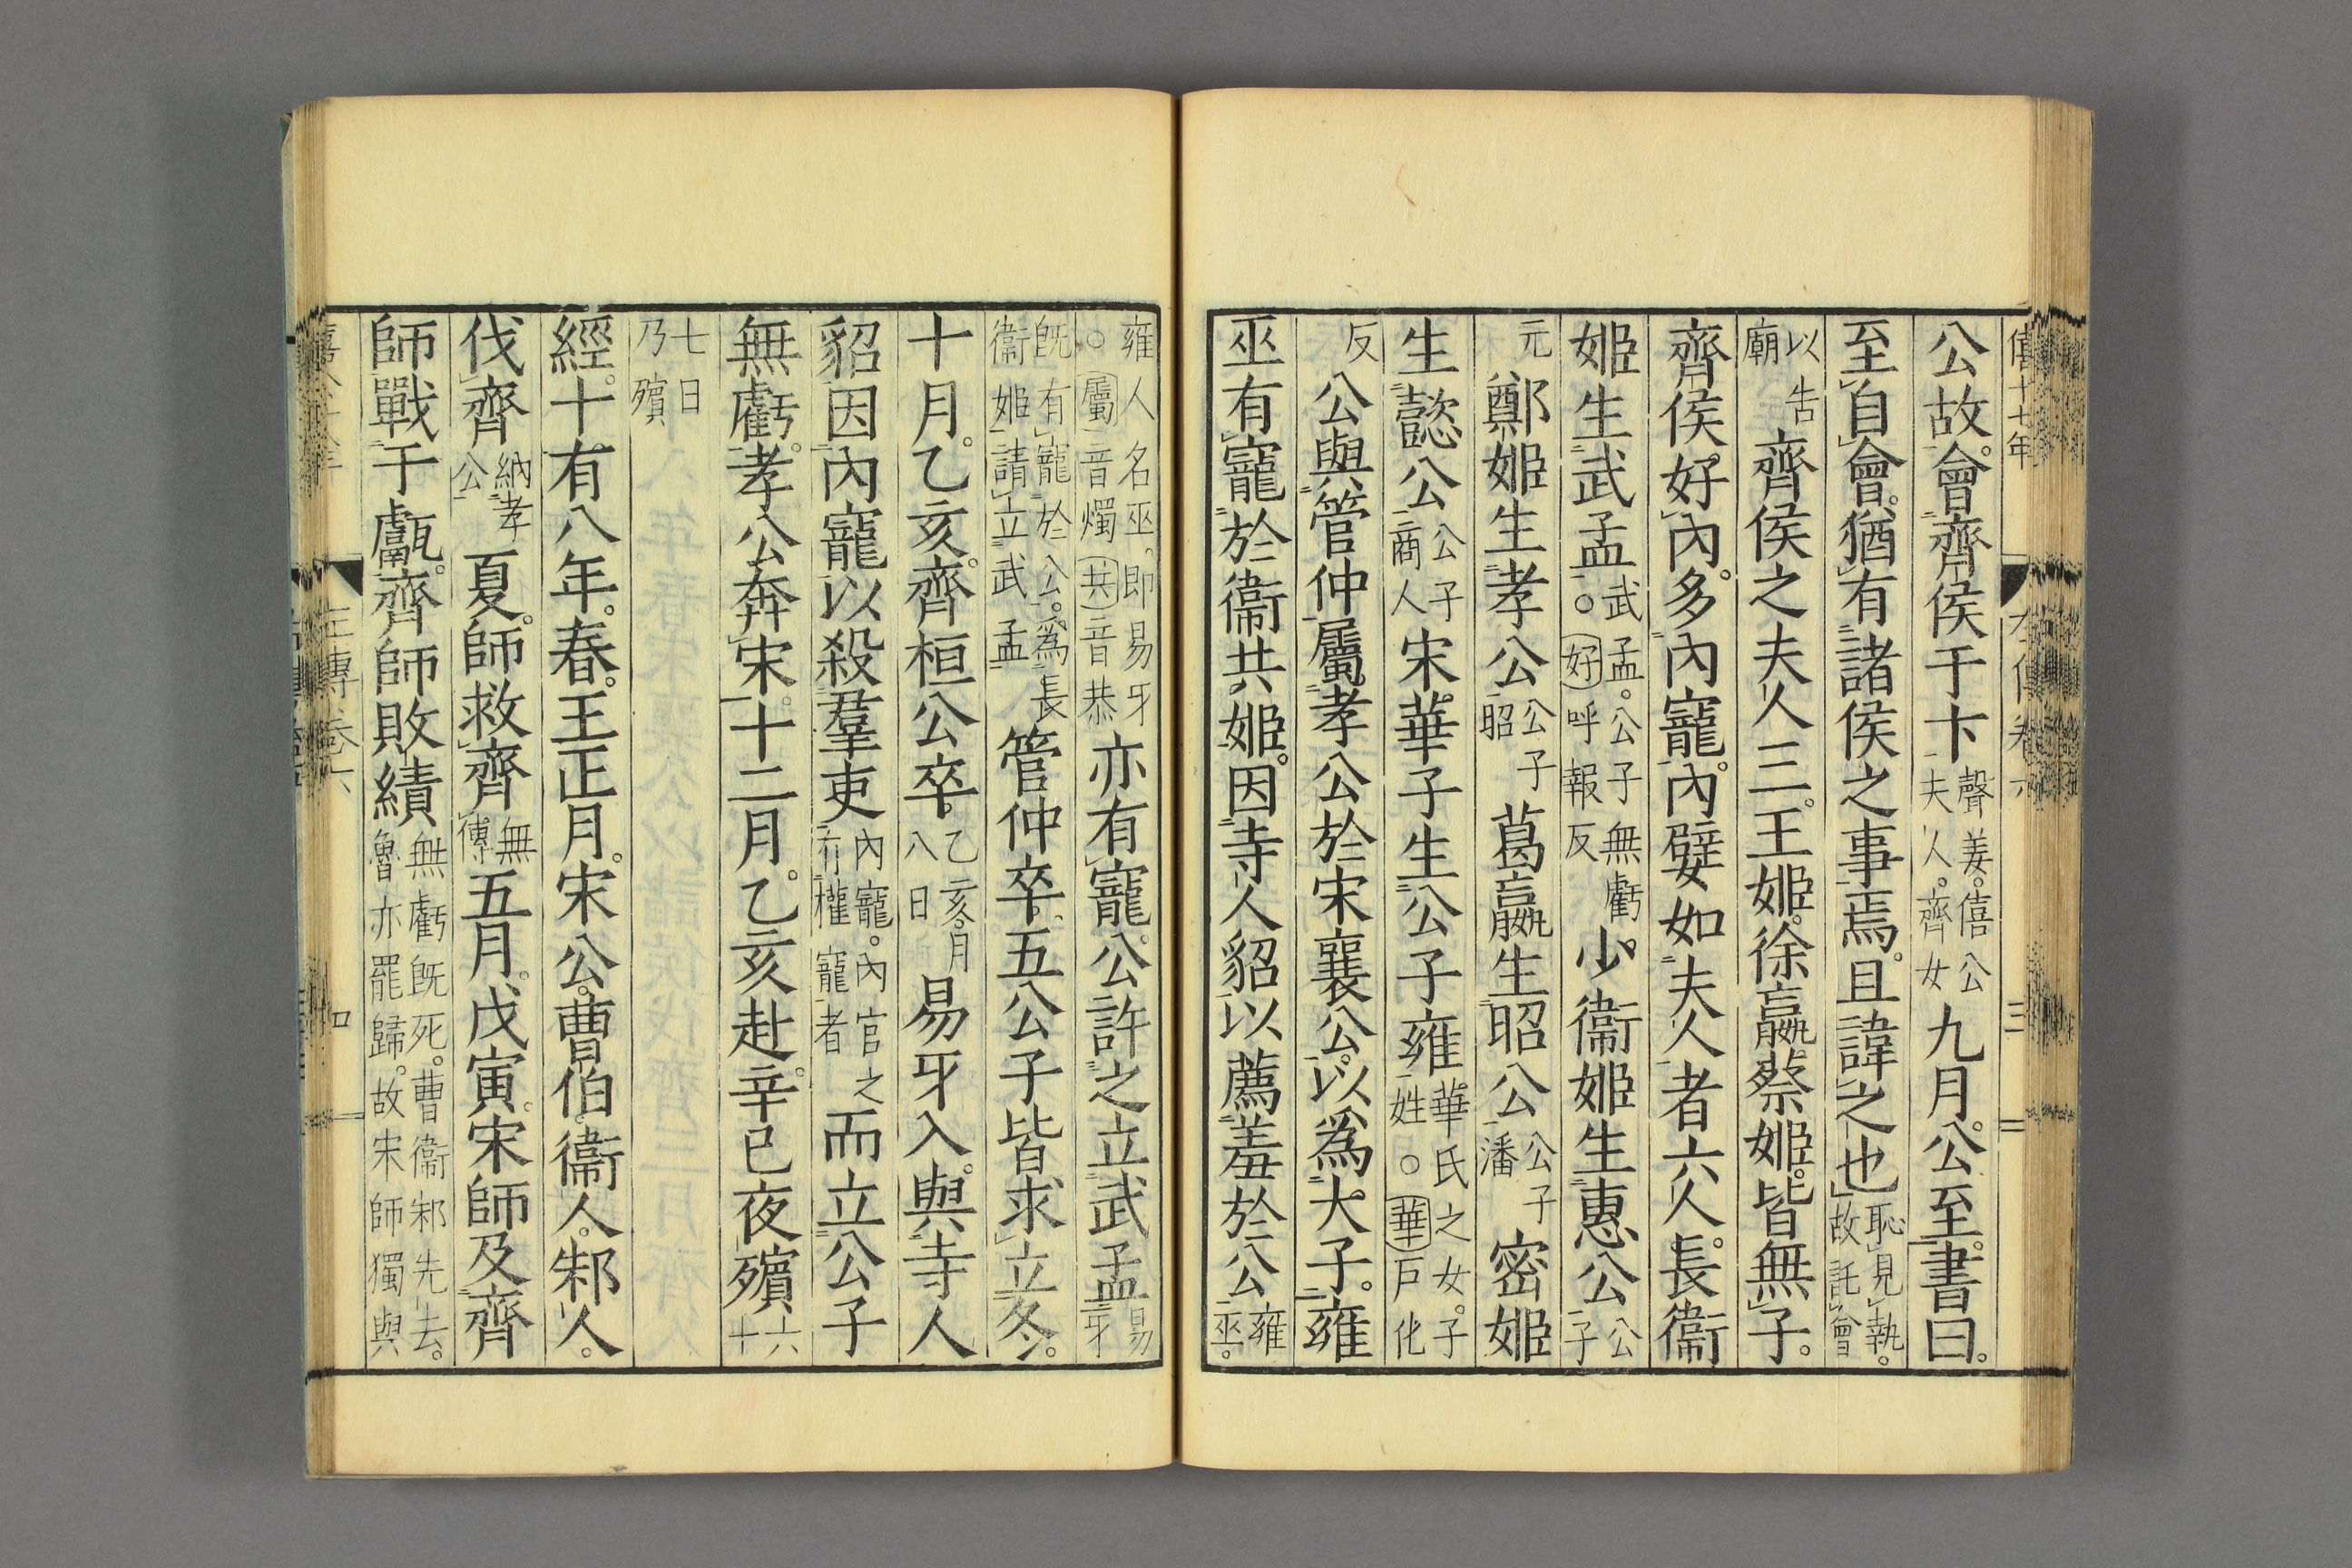 僖十七年
公故會齊侯于卞聲姜僖公夫人齊女九月公至書曰
至自會猶有諸侯之事焉且諱之也恥見執故託會
以告廟齊侯之夫人三王姬徐嬴蔡姬皆無子
齊侯好內多內寵內嬖如夫人者六人長衞
姬生武孟武孟公子無虧○好呼報反少衞姬生惠公公子
元鄭姬生孝公公子昭葛嬴生昭公公子潘密姬
生懿公公子商人宋華子生公子雍華氏之女子姓○華戶化
反公與管仲屬孝公於宋襄公以爲大子雍
巫有寵於衞共姬因寺人貂以薦羞於公雍巫
雍人名巫即易牙○屬音燭共音恭亦有寵公許之立武孟易牙
既有寵於公爲長衞姬請立武孟管仲卒五公子皆求立冬
十月乙亥齊桓公卒乙亥月八日易牙入與寺人
貂因內寵以殺羣吏內寵內官之有權寵者而立公子
無虧孝公奔宋十二月乙亥赴辛巳夜殯六十
七日乃殯
經十有八年春王正月宋公曹伯衞人邾人
伐齊納孝公夏師救齊無傳五月戊寅宋師及齊
師戰于甗齊師敗績無虧既死曹衞邾先去魯亦罷歸故宋師獨與
左傳卷六
四